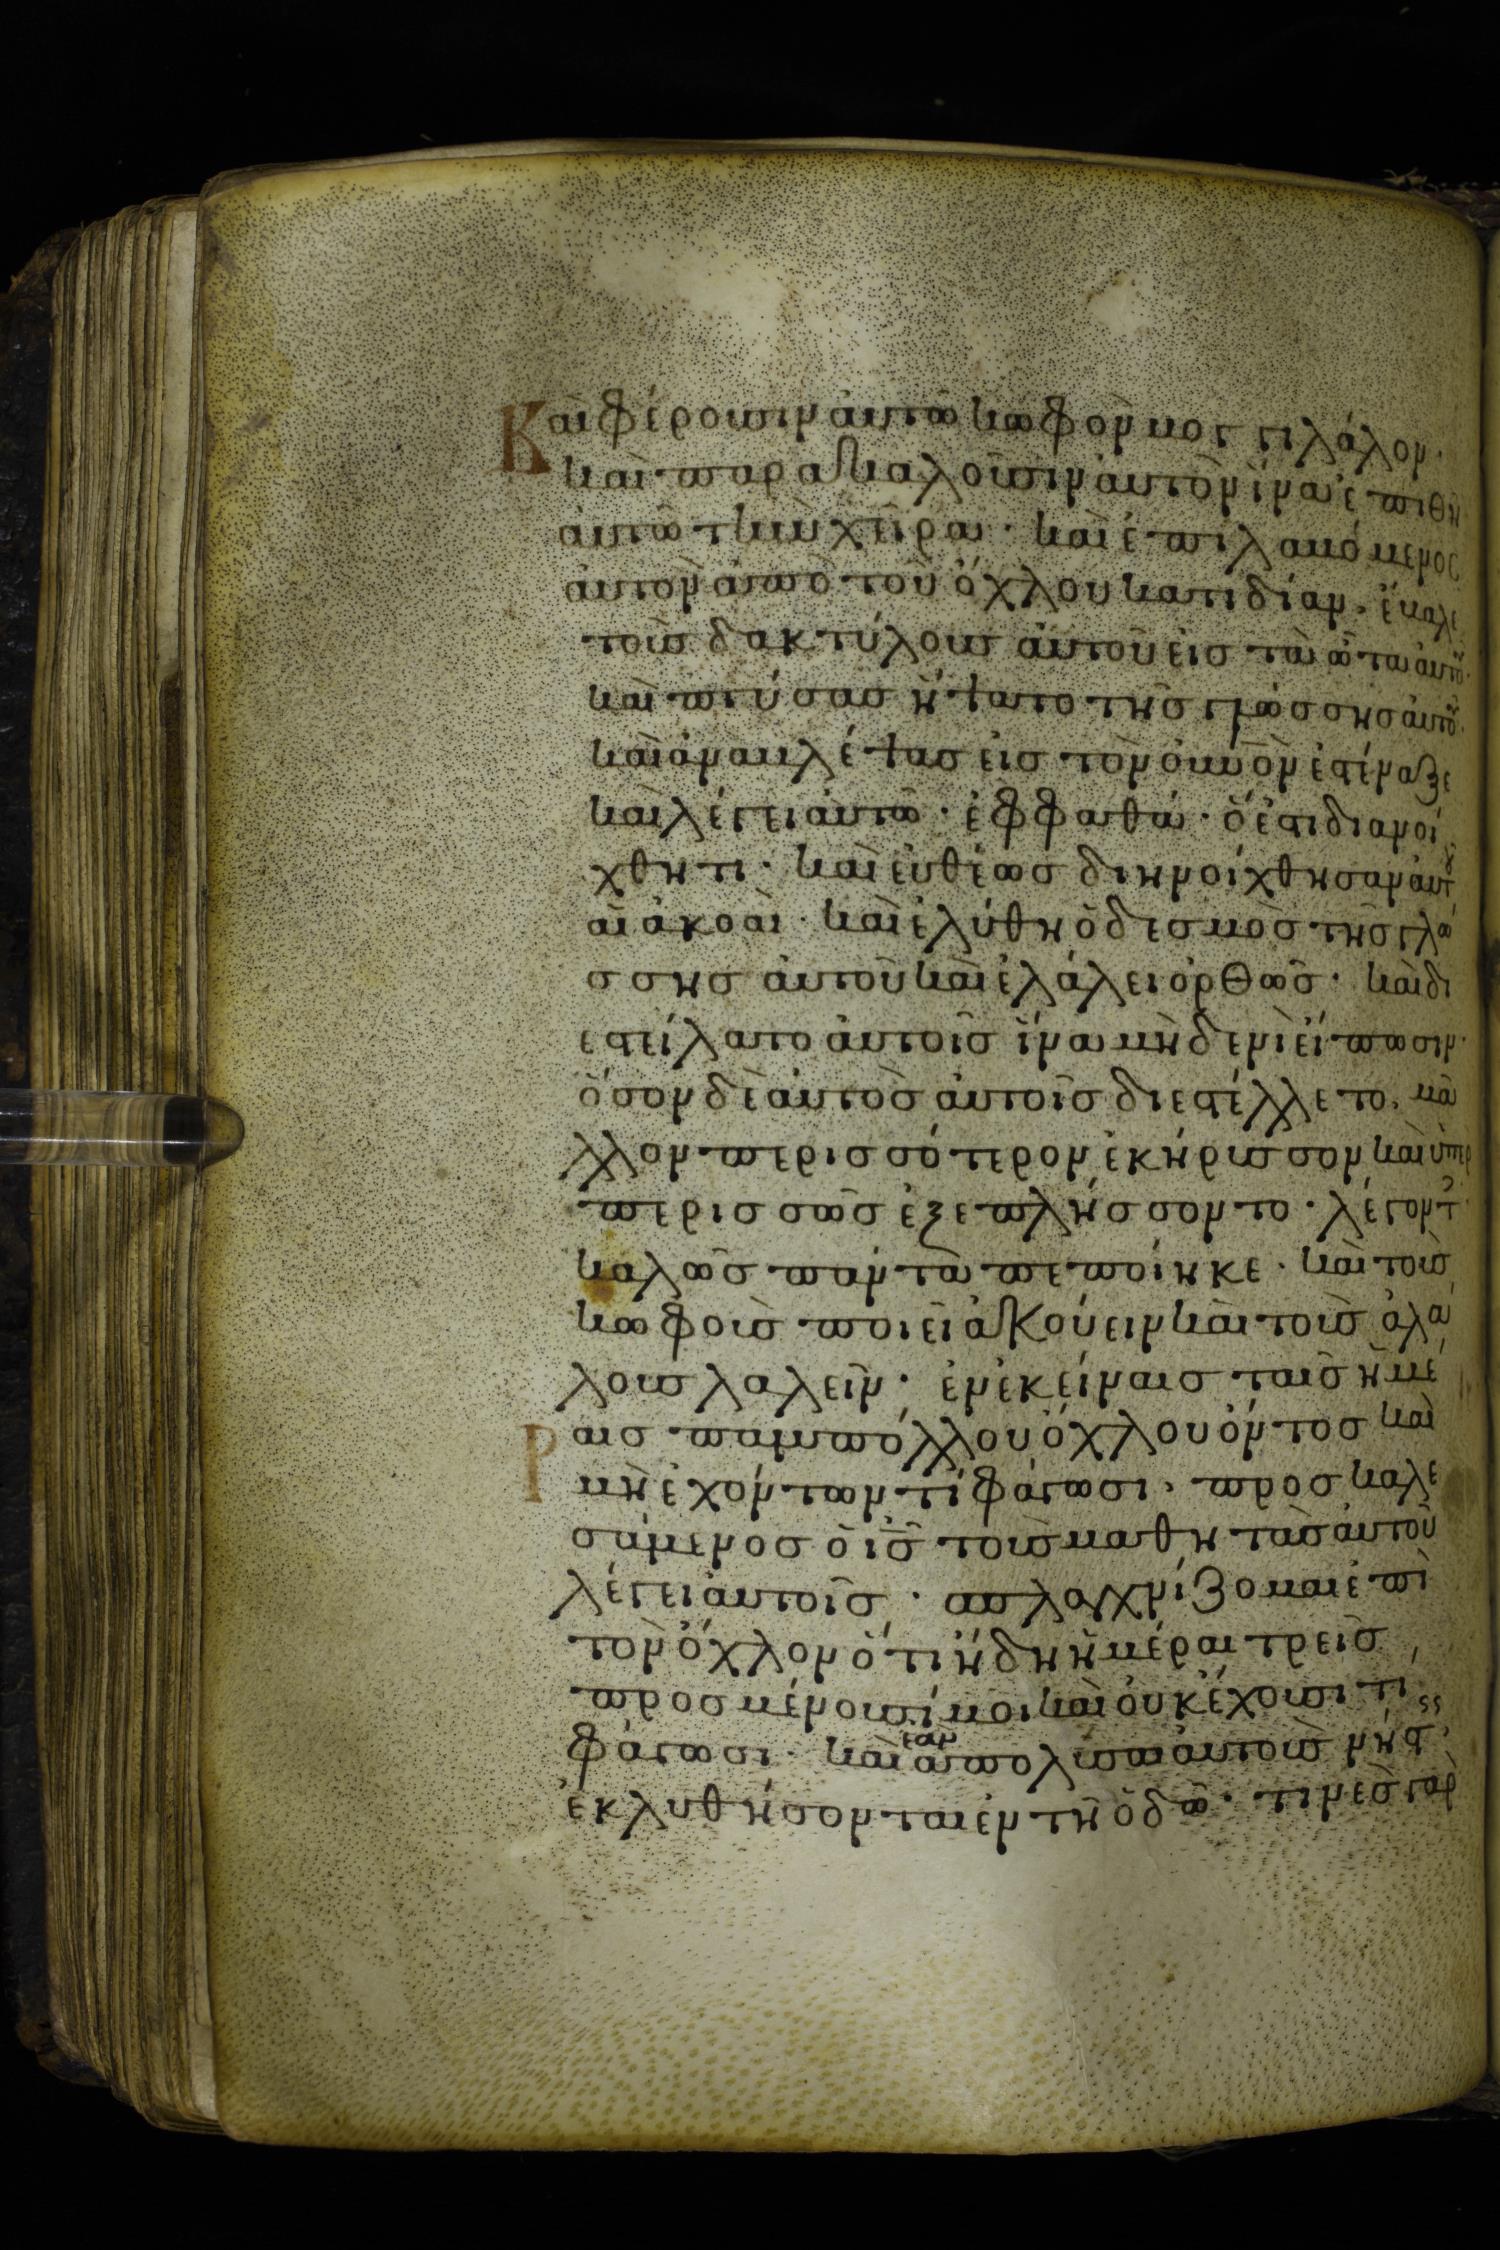 Καὶ φέρουσιν αὐτῶ κωφὸν μογγιλάλον·
καὶ παρακαλοῦσιν αὐτὸν ἵνα ἐπιθῆ
αὐτῶ τὴν χεῖρα· καὶ ἐπιλαβόμενος
αὐτὸν ἀπὸ τοῦ ὄχλου κατιδίαν· ἔβαλε
τοὺς δακτύλους αὐτοῦ εἰς τὰ ὦτα αὐτοῦ
καὶ πτύσας ἥψατο τῆς γλώσσης αὐτοῦ·
καὶ ἀναβλέψας εἰς τὸν οὐνὸν ἐστέναξε
καὶ λέγει αὐτῶ· ἐφφαθά· ὅ ἐστι διανοί
χθητι· καὶ εὐθέως διηνοίχθησαν αὐτοῦ
αἱ ἀκοαί· καὶ ἐλύθη ὁ δεσμὸς τῆς γλώ
σσης αὐτοῦ καὶ ἐλάλει ὀρθῶς· καὶ δι
εστείλατο αὐτοῖς ἵνα μηδενὶ εἴπωσιν·
ὅσον δὲ αὐτὸς αὐτοῖς διεστέλλετο, μᾶ
λλον περισσότερον ἐκήρυσσον καὶ ὑπερ
περισσῶς ἐξεπλήσσοντο· λέγοντ
καλῶς πάντα πεποίηκε· καὶ τοὺς
κωφοὺς ποιεῖ ἀκούειν καὶ τοὺς ἀλά
λους λαλεῖν· ἐν ἐκείναις ταῖς ἡμέ
ραις παμπόλλου ὄχλου ὄντος καὶ
μὴ ἐχόντων τί φάγωσι, προσκαλε
σάμενος ὁ ις τοὺς μαθητὰς αὐτοῦ
λέγει αὐτοῖς· σπλαγχνίζομαι ἐπὶ
τὸν ὄχλον ὅτι ἤδη ἡμέραι τρεῖς
προσμένουσί μοι καὶ οὐκ ἔχουσι τί
φάγωσι· καὶ ἐὰν ἀπολύσω αὐτοὺς νήστ
ἐκλυθήσονται ἐν τῆ ὁδῶ· τινὲς γὰρ